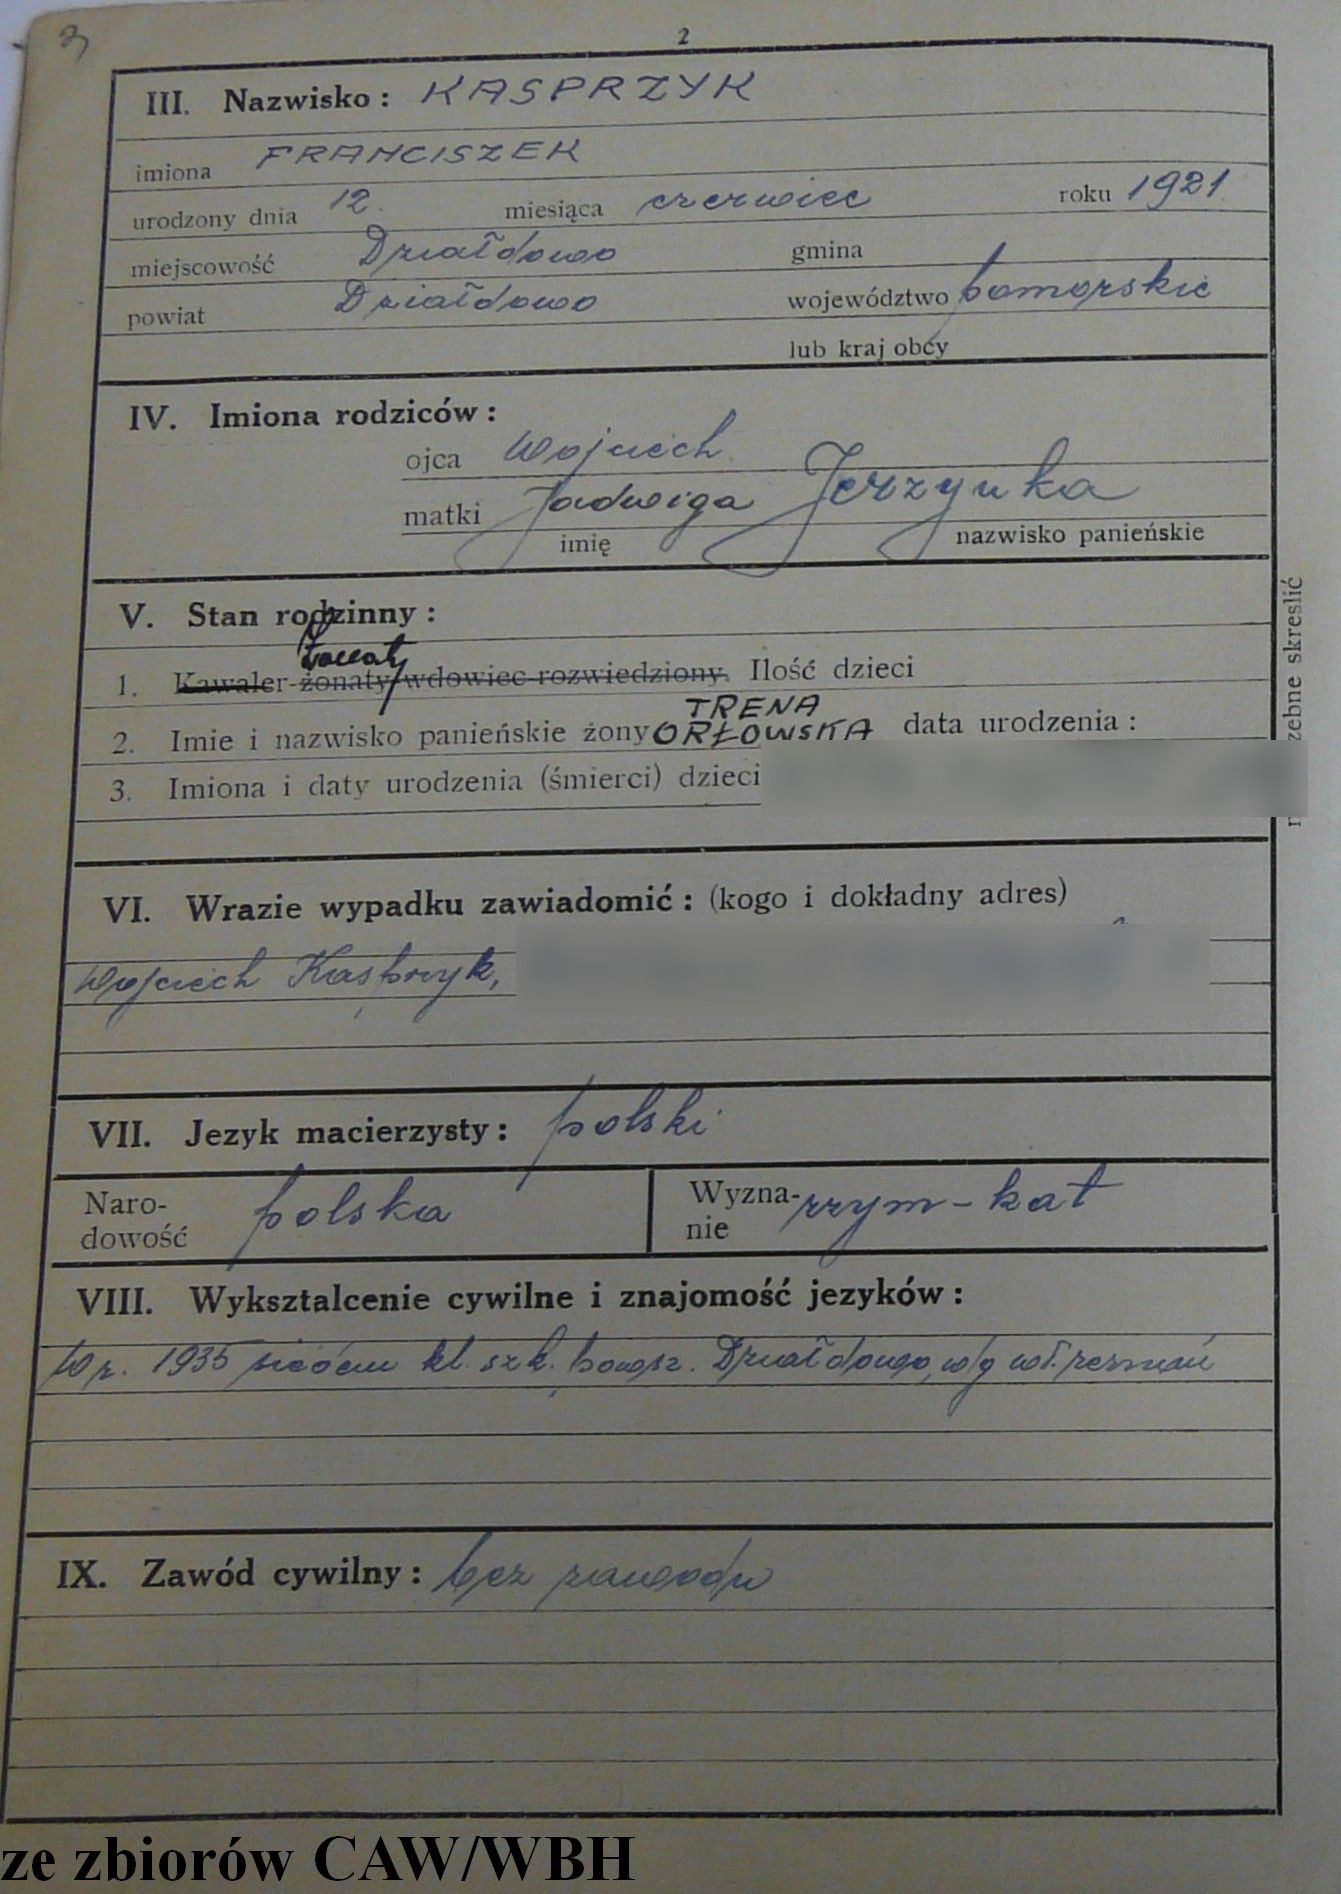 2
III. Nazwisko: KASPRZYK
imiona FRANCISZEK
urodzony dnia 12. miesiąca czerwiec roku 1921.
miejscowość Działdowo gmina
powiat Działdowo województwo pomorskie
lub kraj obcy
IV. Imiona rodziców:
ojca Wojciech
matki Jadwiga Jerzynka
imię nazwisko panieńskie
V. Stan rodzinny:
żonaty
1. Kawaler-żonaty wdowiec-rozwiedziony. Ilość dzieci
IRENA
2. Imie i nazwisko panieńskie żony ORŁOWSKA data urodzenia:
3. Imiona i daty urodzenia (śmierci) dzieci
zebne skreslić
VI. Wrazie wypadku zawiadomić: (kogo i dokładny adres)
Wojciech Kasprzyk,
VII. Jezyk macierzysty: polski
Naro-
dowość polska
Wyzna-
nie rzym-kat
VIII. Wyksztalcenie cywilne i znajomość jezyków:
W r. 1935 siedem kl. szk. powsz. Działdowo, w/g wł. zeznań
IX. Zawód cywilny: bez zawodu
ze zbiorów CAW/WBH